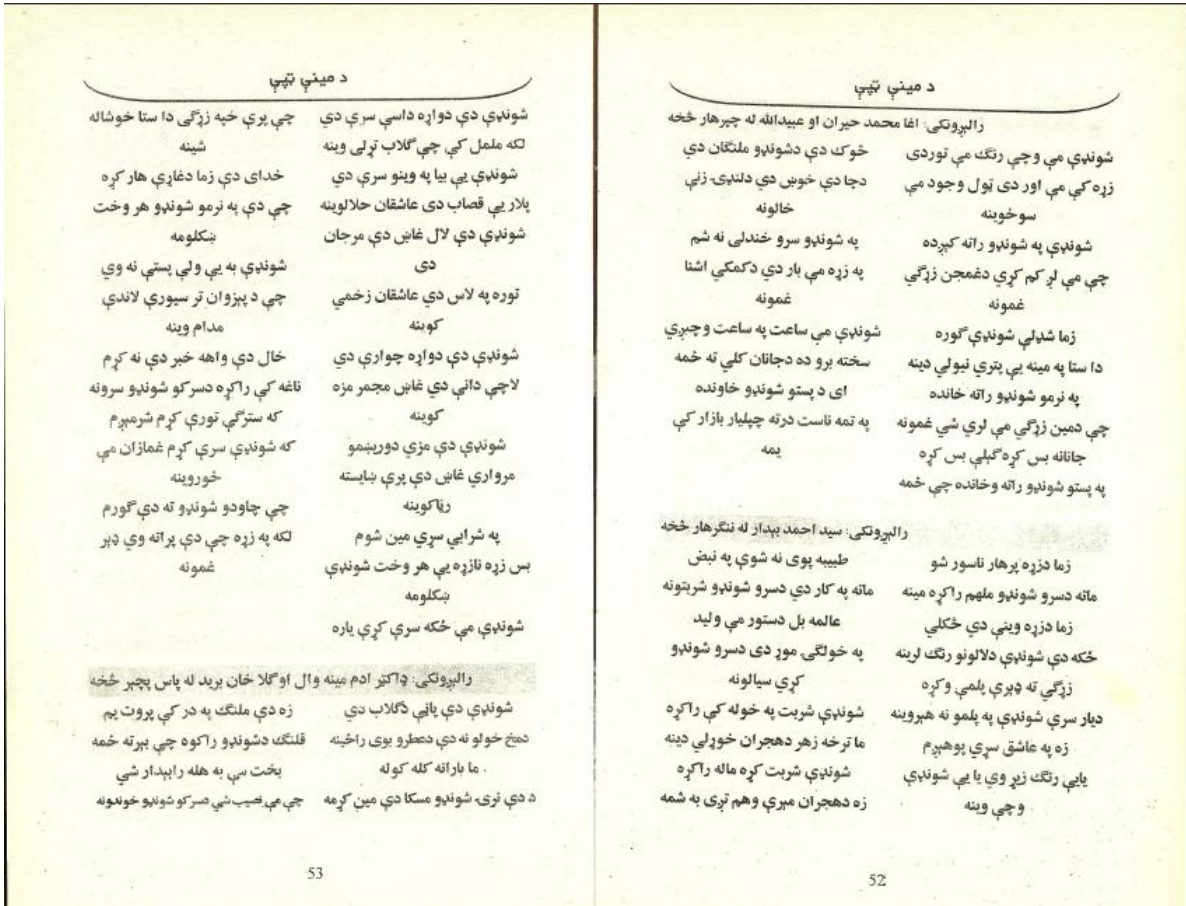 د مينې ټپې
رالېږونکی: اغا محمد حيران او عبيدالله له چپرهار څخه
شونډې مې وچې رنگ مې توردی
زړه کې مې اور دی ټول وجود مې
سوځوينه
شونډې په شونډو راته کېږده
چې مې لږ کم کړي دغمجن زړگي
غمونه
زما شڼلې شونډې گوره
دا ستا په مينه يې پترې نيولي دينه
په نرمو شونډو راته خانده
چې دمين زړگي مې لرې شي غمونه
جانانه بس کړه گېلې بس کړه
په پستو شونډو راته وخانده چې ځمه
څوک دې دشونډو ملنگان دي
دچا دې خوښ دي دلنډۍ زنې
خالونه
په شونډو سرو خندلی نه شم
په زړه مې بار دي دکمکي اشنا
غمونه
شونډې مې ساعت په ساعت وچېږي
سخته برو ده دجانان کلي ته ځمه
ای د پستو شونډو خاونده
په تمه ناست درته چپليار بازار کې
يمه
رالېږونکی: سيد احمد بېدار له ننگرهار څخه
زما دزړه پرهار ناسور شو
ماته دسرو شونډو ملهم راکړه مينه
زما دزړه وينې دې څکلي
ځکه دې شونډې دلالونو رنگ لرينه
زړگي ته ډېرې پلمې وکړه
ديار سرې شونډې په پلمو نه هېروينه
زه په عاشق سړي پوهېږم
يايې رنگ زېړ وي يا يې شونډې
وچې وينه
طبيبه پوی نه شوې په نبض
ماته په کار دي دسرو شونډو شربتونه
عالمه بل دستور مې وليد
په خولگۍ موړ دی دسرو شونډو
کړي سيالونه
شونډې شربت په خوله کې راکړه
ما ترخه زهر دهجران خوړلي دينه
شونډې شربت کړه ماله راکړه
زه دهجران مېرې وهم تږی به شمه
52
د مينې ټپې
شونډې دې دواړه داسې سرې دي
لکه ململ کې چې گلاب تړلی وينه
شونډې يې بيا په وينو سرې دي
پلار يې قصاب دی عاشقان حلالوينه
شونډې دې لال غاښ دې مرجان
دی
توره په لاس دي عاشقان زخمي
کوينه
شونډې دې دواړه چوارې دي
لاچي دانې دي غاښ مجمر مزه
کوينه
شونډې دې مزي دورېښمو
مرواري غاښ دې پرې ښايسته
رڼاکوينه
په شرابي سړي مين شوم
بس زړه نازړه يې هر وخت شونډې
ښکلومه
شونډې مې ځکه سرې کړې ياره
چې پرې خپه زړگی دا ستا خوشاله
شينه
خدای دې زما دغاړې هار کړه
چې دې په نرمو شونډو هر وخت
ښکلومه
شونډې به يې ولې پستې نه وي
چې د پېزوان تر سيوري لاندې
مدام وينه
خال دې واهه خبر دې نه کړم
ناغه کې راکړه دسرکو شونډو سرونه
که سترگې تورې کړم شرمېږم
که شونډې سرې کړم غمازان مې
خوروينه
چې چاودو شونډو ته دې گورم
لکه په زړه چې دې پراته وي ډېر
غمونه
رالېږونکی: ډاکټر ادم مينه وال اوگلا خان بريد له پاس پچېر څخه
شونډې دې پاڼې دگلاب دي
دمخ خولو نه دې دعطرو بوی راځينه
ما يارانه کله کوله
د دې نرۍ شونډو مسکا دې مين کړمه
زه دې ملنگ په در کې پروت يم
قلنگ دشونډو راکوه چې بېرته ځمه
بخت مې به هله رابېدار شي
چې مې نصيب شي دسرکو شونډو خوندونه
53